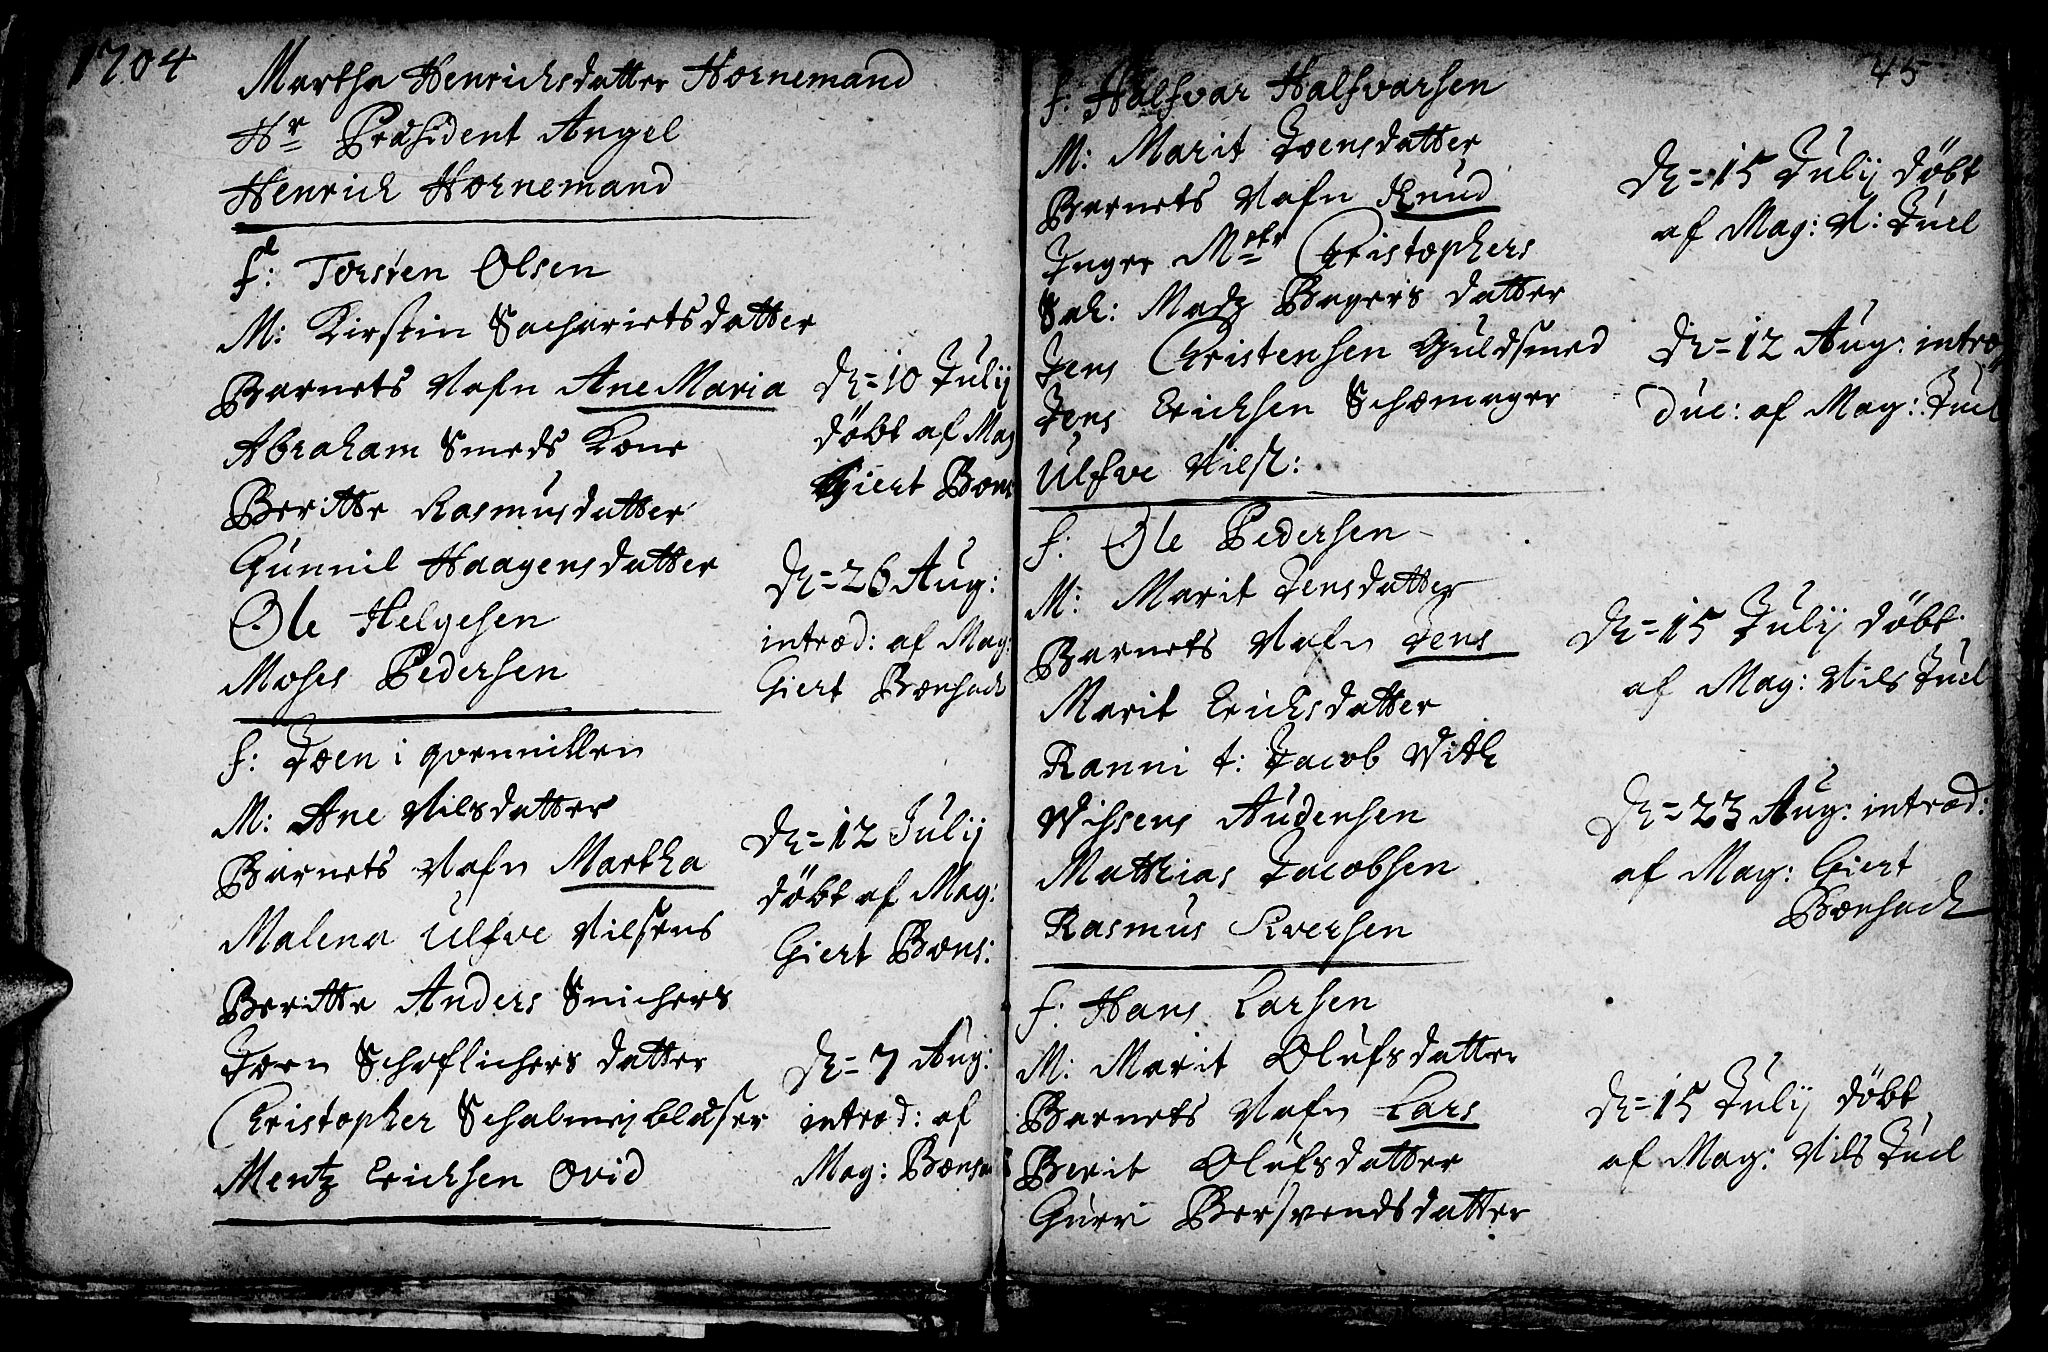 1704
Martha Henrichsdatter Hornemand
Hr Præsident Angel
Henrich Hornemand
f: Torsten Olsen
M: Kirstin Sacharietsdatter
Barnets Nafn Ane Maria
Abraham Smeds Kone
Beritte Rasmusdatter
Gunnil Haagensdatter
Ole Helgesen
Moses Pedersen
D: = 10 Julij
døbt af Mag
Giert Bons
D: = 26 Aug:
introd: af Mag:
Giert Bonsach
f: Joen i qvernillen
M: Ane Nilsdatter
Barnets Nafn Martha
Malena Ulfve Nilsens
Beritte Anders Snichers
Joen Schoflichers datter
Christopher Schalmejblæser
Mentz Erichsen Ovid
D: = 12 Julij
døbt af Mag:
Giert Bons:
D: = 7 Aug:
introd: af
Mag: Bonsa
45
f: Halfvar Halfvarsen
M: Marit Joensdatter
Barnets Nafn Knud
Inger Christophers
Sal: Madz Bagers datter
Jens Christensen Guldsmed
Jens Erichsen Schomager
Ulfve Nils:
D: = 15 Julij døbt
af Mag: N: Juel
D: = 12 Aug: intro
duc: af Mag: Juel
f: Ole Pedersen
M: Marit Jensdatter
Barnets Nafn Jens
Marit Erichsdatter
Ranni t: Jacob With
Wissens Audensen
Matthias Jacobsen
Rasmus Siversen
D: = 15 Julij døbt
af Mag: Nils Juel
D: = 23 Aug: introd:
af Mag: Giert
Bonsach
f: Hans Larsen
M: Marit Olufsdatter
Barnets Nafn Lars
Berit Olufsdatter
Gurri Bersvendsdatter
D: = 15 Julij døbt
af Mag: Nils Juel